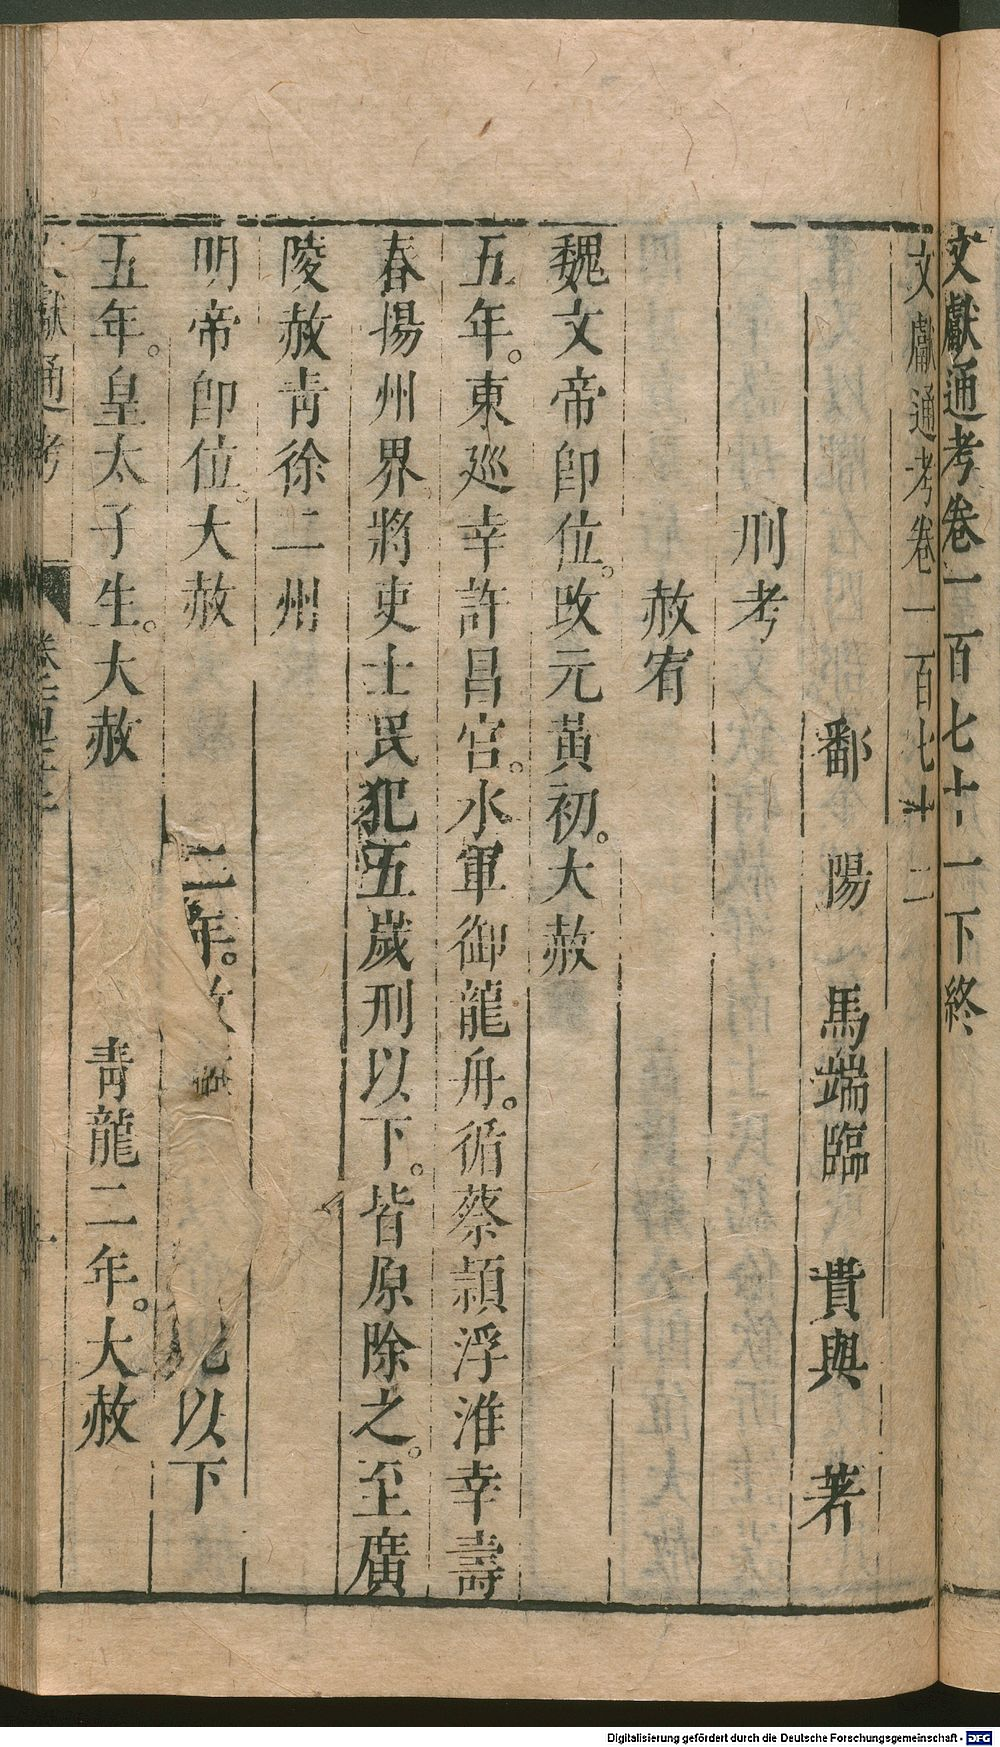 文獻通考卷一百七十一下終
文獻通考卷一百七十二
鄱陽 馬端臨 貴與 著
刑考
赦宥
魏文帝卽位。改元黃初。大赦
五年。東巡幸許昌宮。水軍御龍舟。循蔡潁浮淮幸壽
春揚州界。將吏士民犯五歲刑以下。皆原除之。至廣
陵赦青徐二州
明帝卽位。大赦 二年。 以下
五年。皇太子生。大赦 青龍二年。大赦
獻通考
Digitalisierung gefördert durch die Deutsche Forschungsgemeinschaft - DFG